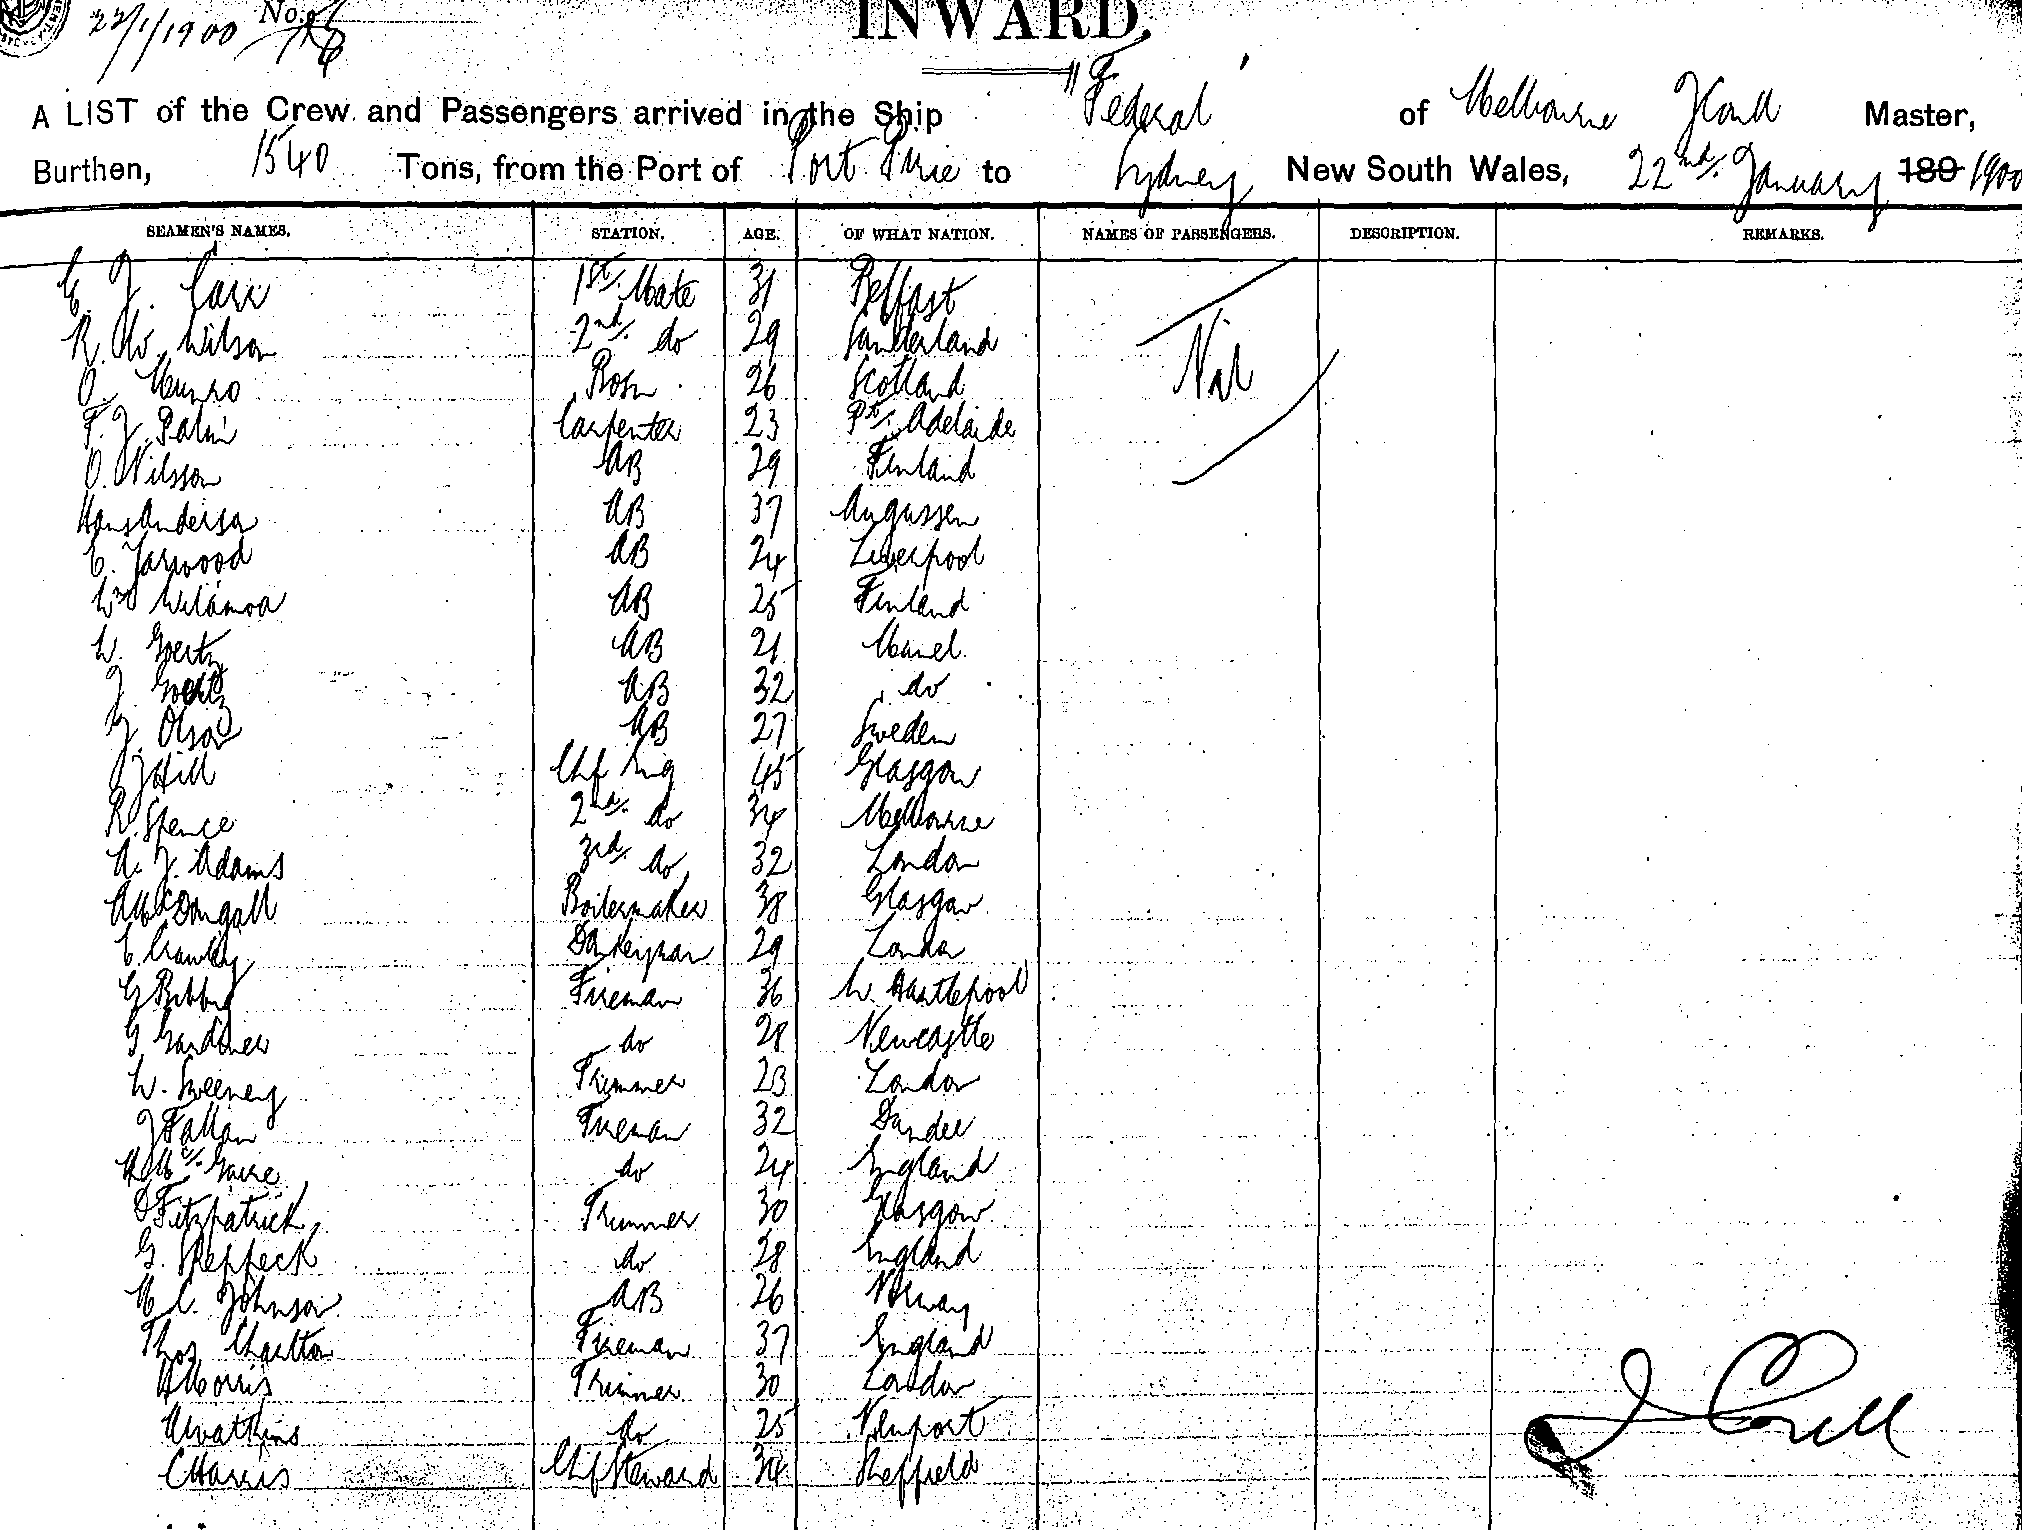 22/1/1900 No.
INWARD.
A LIST of the Crew and Passengers arrived in the Ship "Federal" of Melbourne Master,
Burthen, 1540 Tons, from the Port of Port Pirie to Sydney New South Wales, 22nd. January 189 1900
SEAMEN'S NAMES. STATION. AGE. OF WHAT NATION. NAMES OF PASSENGERS. DESCRIPTION. REMARKS.
J. Carr 1st. Mate 31 Belfast
R. W. Wilson 2nd. do 29 Sunderland Nil
O. Munro Bosn 26 Scotland
F. J. Palm Carpenter 23 Pt. Adelaide
O. Nilsson AB 29 Finland
Hans Anderson AB 37 Angussen
C. Yarwood AB 24 Liverpool
Wm AB 25 Finland
W. Goertz AB 21
J. Goertz AB 32 do
J. Olson AB 27 Sweden
J Hill Chf Eng 45 Glasgow
R. Spence 2nd. do 34 Melbourne
A. J. Adams 3rd. do 32 London
A McDougall Boilermaker 38 Glasgow
C. Crowley Donkeyman 29 London
G Bibby Fireman 36 W. Hartlepool
G Gardiner do 28 Newcastle
W. Sweeney Trimmer 23 London
J Fallon Fireman 32 Dundee
do 24 England
D Fitzpatrick Trimmer 30 Glasgow
G. Sheppeck do 28 England
M. C. Johnson AB 26 Norway
Thos Charlton Fireman 37 England
H Morris Trimmer 30 London
A Watkins do 25 Newport
C Harris Chf Steward 34 Sheffield